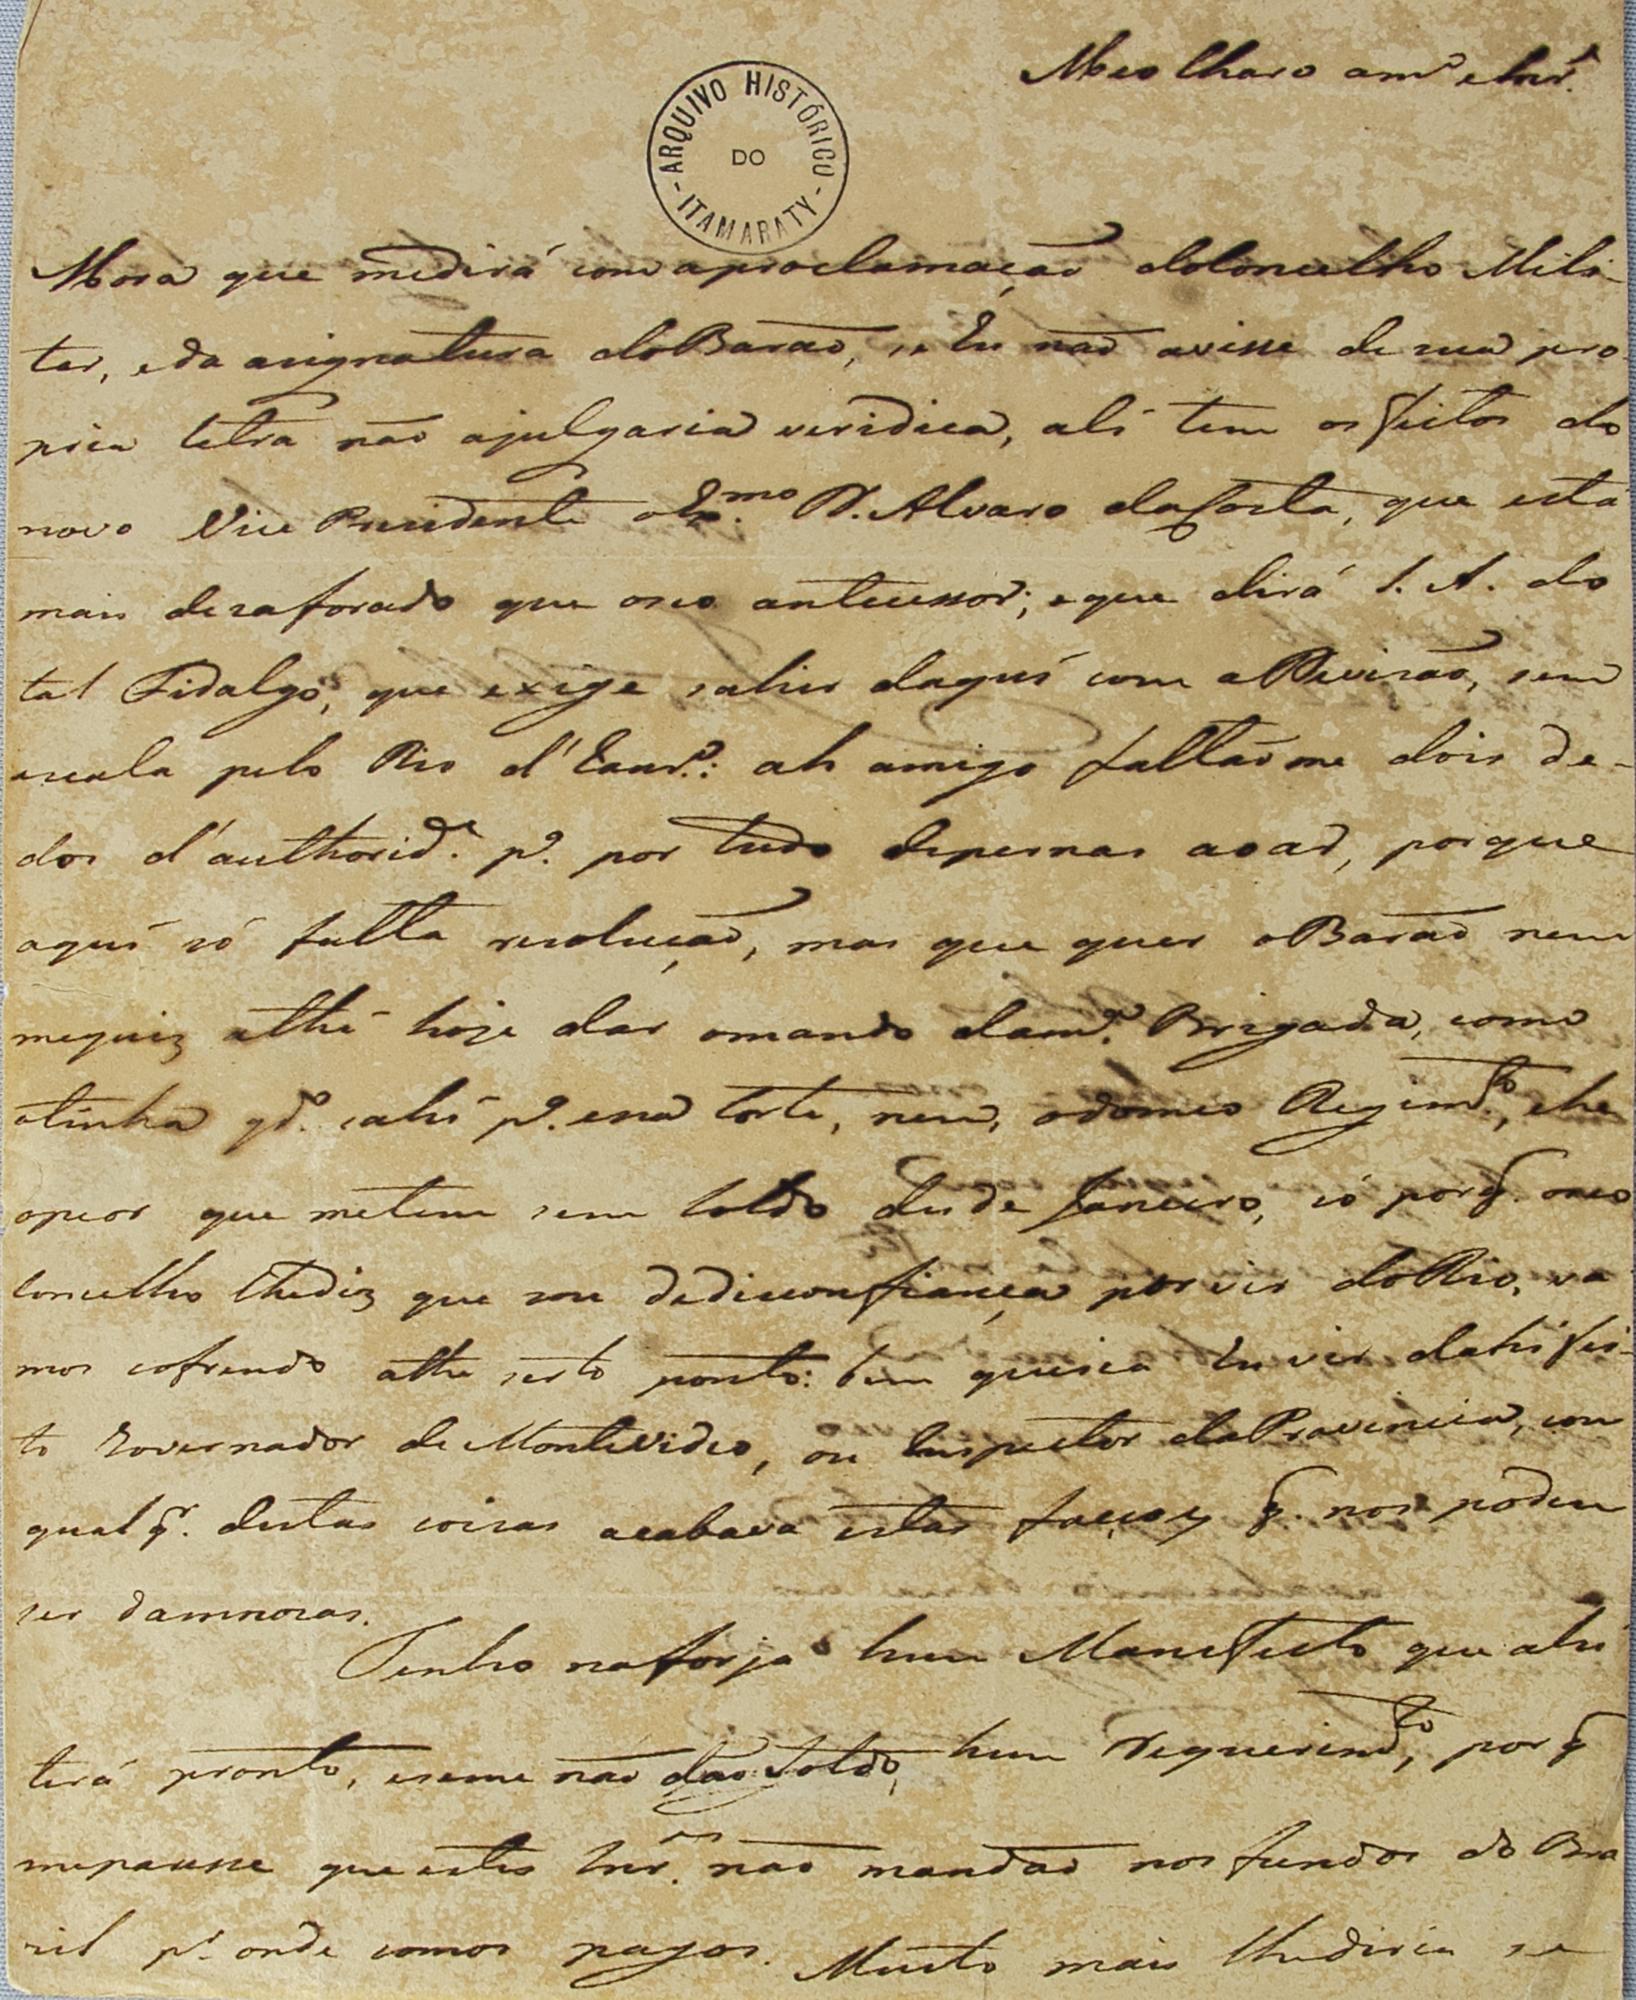 Meo Charo am.º e Snr.
ARQUIVO HISTÓRICO DO ITAMARATY
Hora que medirá com aproclamação doConcelho Mili-
tar, eda asignatura doBarão, se Eu não avisse de sua pro-
pria letra não ajulgaria veridica, ali tem os feitos do
novo Vice Presidente oEx.mo D. Alvaro daCosta, que esta
mais desaforado que oseo antecessor; eque dirá S. A. do
tal Fidalgo, que exige sahir daqui com aDivisão, sem
escala pelo Rio d'Janr.º: ah amigo faltãome dois de-
dos d'authorid.e p.a por tudo depernas aoar, porque
aqui só falta resolução, mas que quer oBarão nem
mequiz athé hoje dar omando dam.a Brigada, como
atinha qd.o sahi p.a essa Corte, nem, odomeo Regim.to, ehe
opeor que metem sem Soldo desde Janeiro, só porq. oseo
Concelho lhediz que sou dedisconfiança por vir doRio, va-
mos sofrendo athe serto ponto: bem queria Eu vir dahi fei-
to Governador de Montevideo, ou Inspector daProvincia, com
qualq.r destas coisas acabava estas facçoes q. nos podem
ser damnosas.
Tenho naforja hum Manifesto que ahi
terá pronto, eseme não dão Soldo, hum requerim.to, porq
meparesse que estes Snr.es não mandão nos fundos do Bra
sil p.r onde somos pagos. Muito mais lhediria se